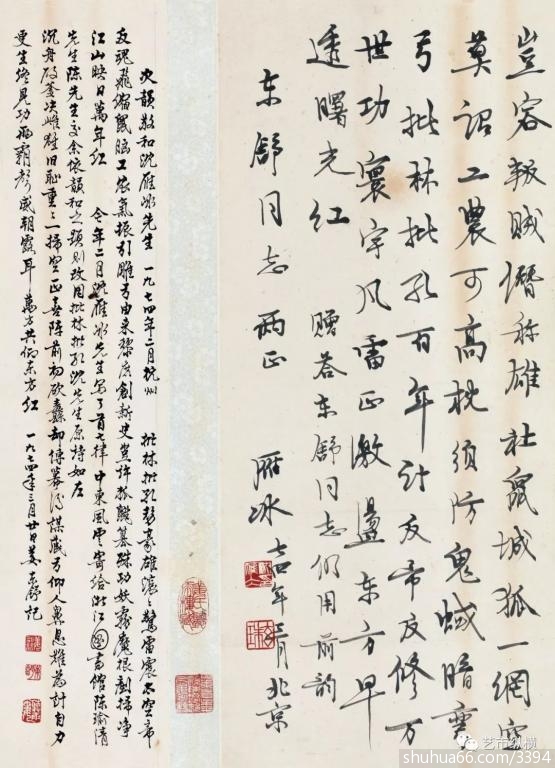 岂容叛贼僭称雄社鼠城狐一网空
莫诏工农可高枕须防鬼蜮暗弯
弓批林批孔百年计反帝反修万
世功寰宇风雷正激荡东方早
透曙光红
赠答东舒同志仍用前韵
东舒同志两正
雁冰 七四年三月北京
次韵敬和沈雁冰先生 一九七四年二月杭州 批林批孔聚豪雄滚滚惊雷震太空帝
反魂飞缩鼠
工农气振引雕弓由来
创新史岂许狐
篡殊功妖雾魔根剷扫净
江山映日万年红 今年二月沈雁冰先生写了首七律中东风云寄给浙江图书馆陈瑜清
先生陈先生
余依韵和之题则改用批林批孔沈先生原诗如左
沉舟破釜决雌雄旧耻重重一扫空正喜阵前初砍纛却
幕后
谋藏弓仰人鼻息难为计自力
更生终见功
霸
威朝露耳 万方共仰东方红 一九七四年三月廿日姜东舒记
艺市纵横
shuhua66.com/3394